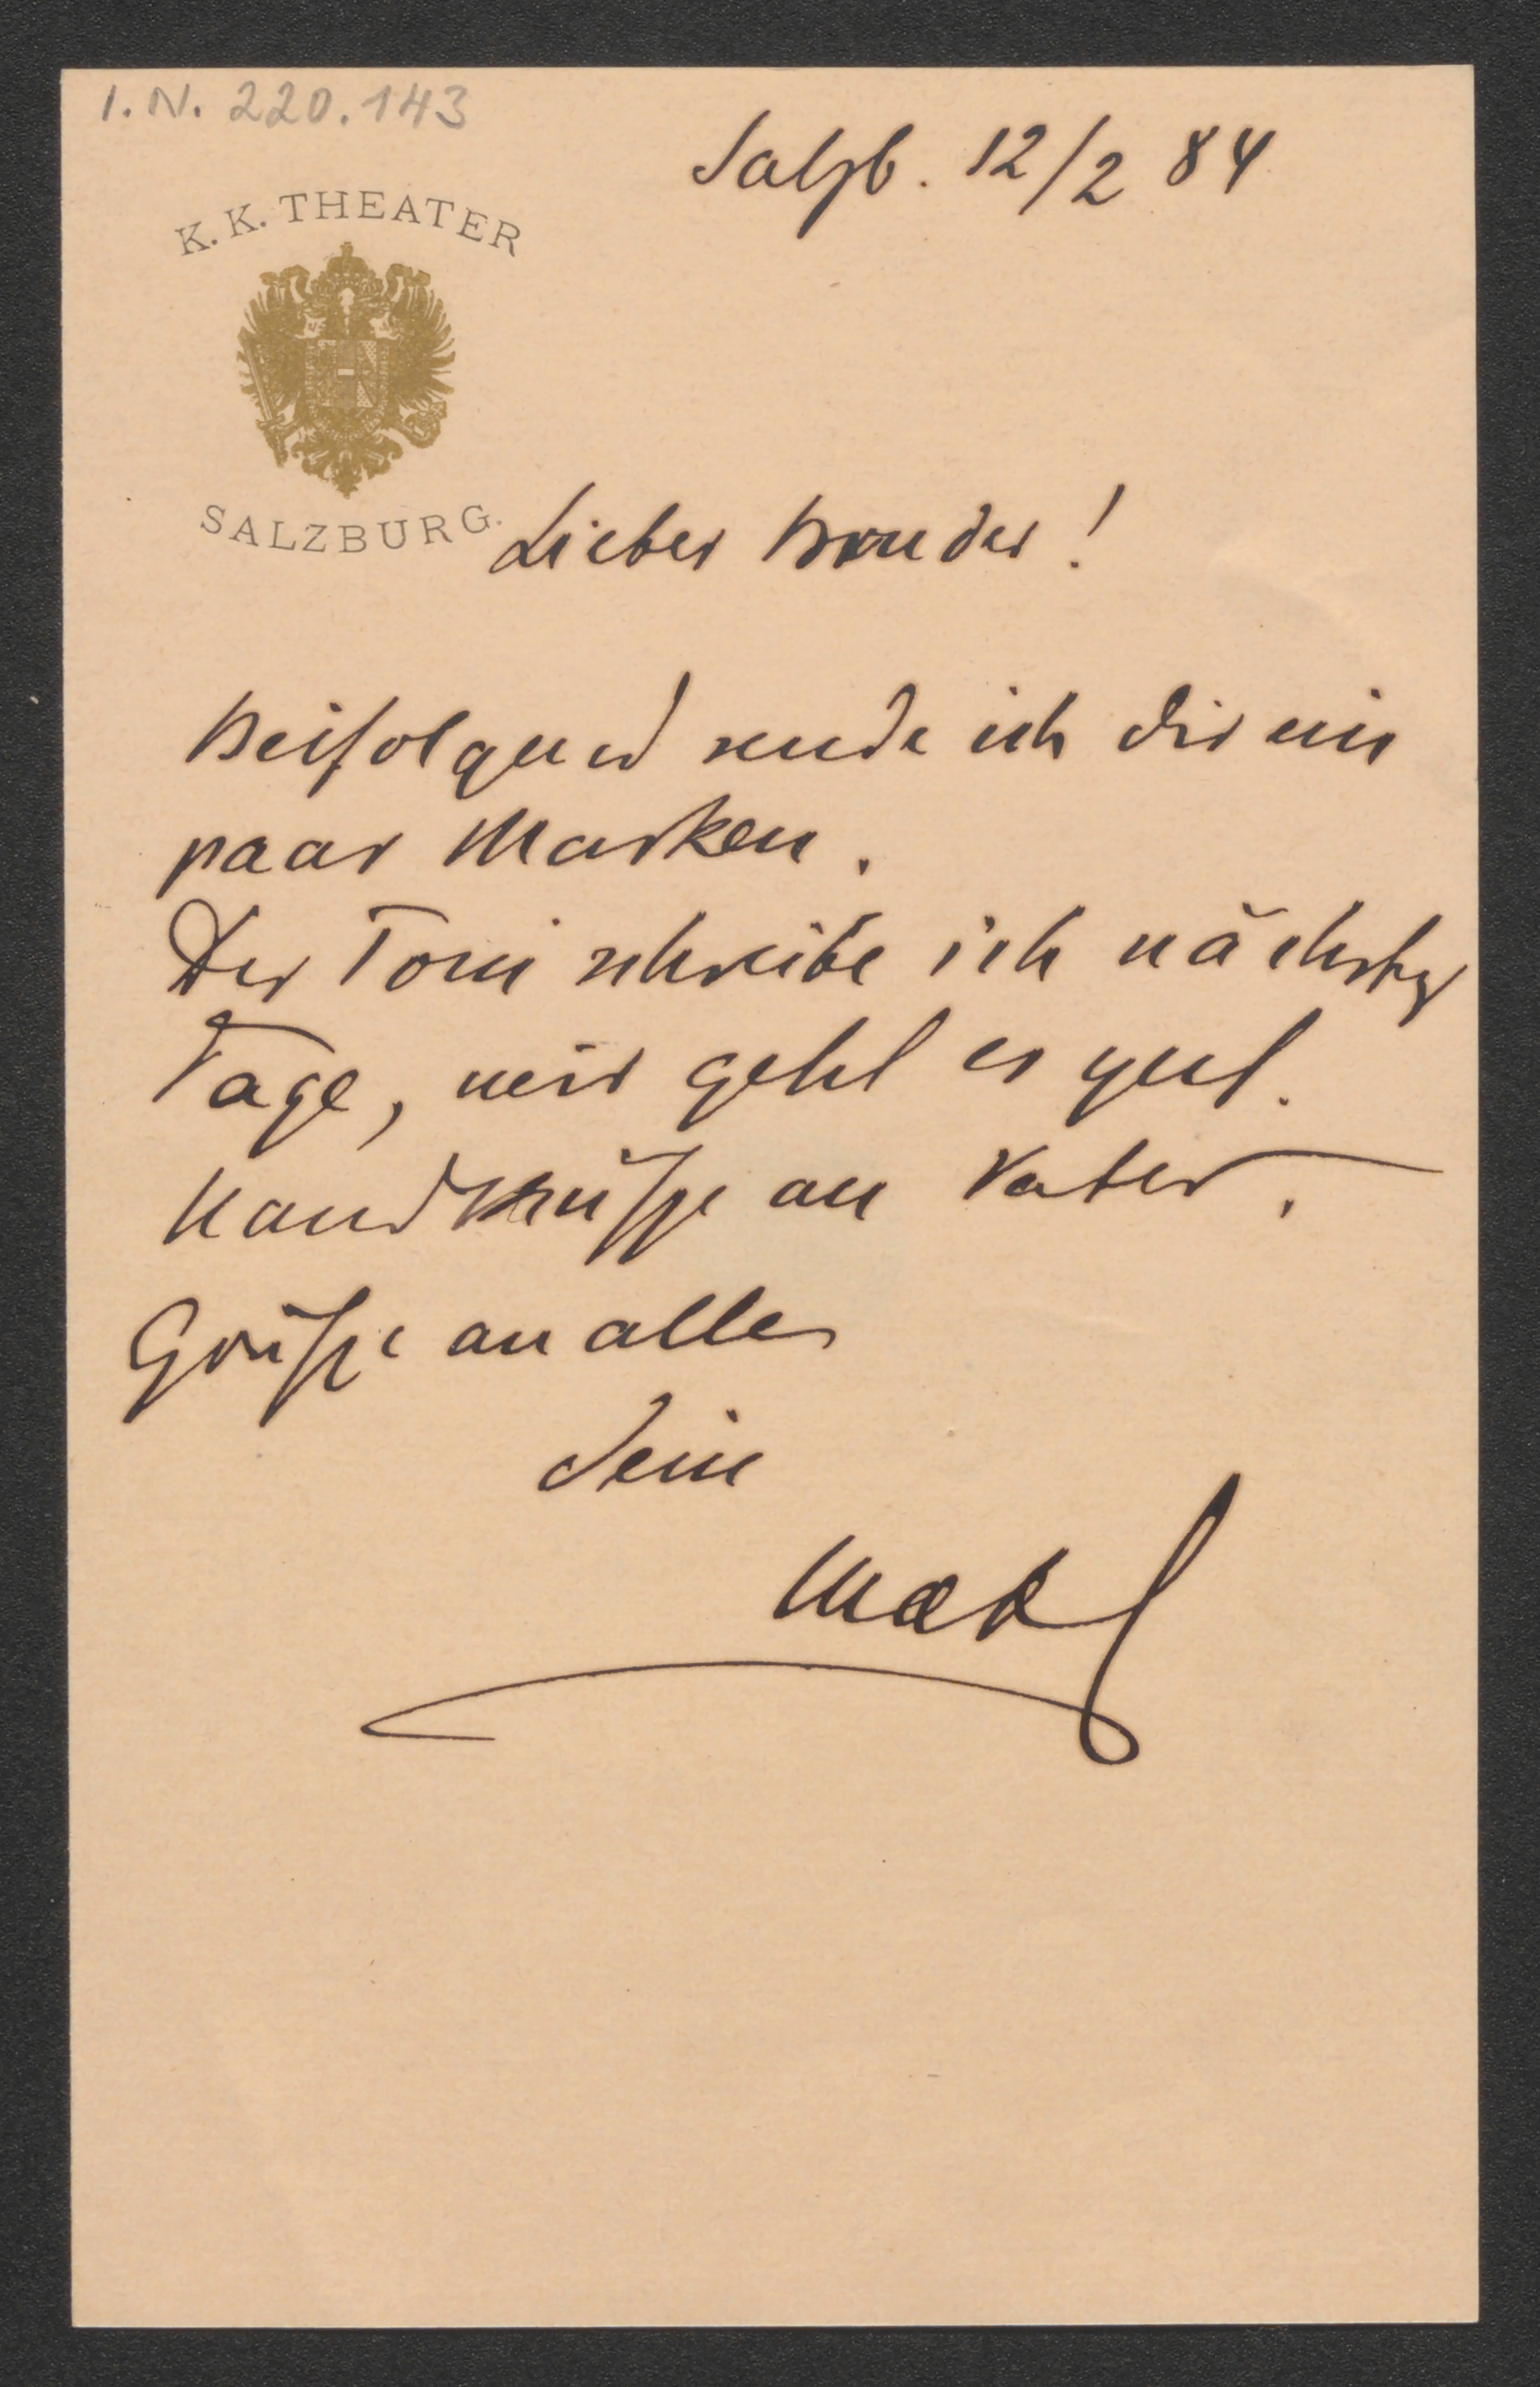 I.N. 220.143
Salzb. 12/2 84
K. K. THEATER
SALZBURG.
Lieber Bruder!
Beifolgend sende ich dir ein
paar Marken.
Der Toni schreibe ich nächster
Tage, mir geht es gut.
Handküsse an Vater.
Grüsse an alle
Dein